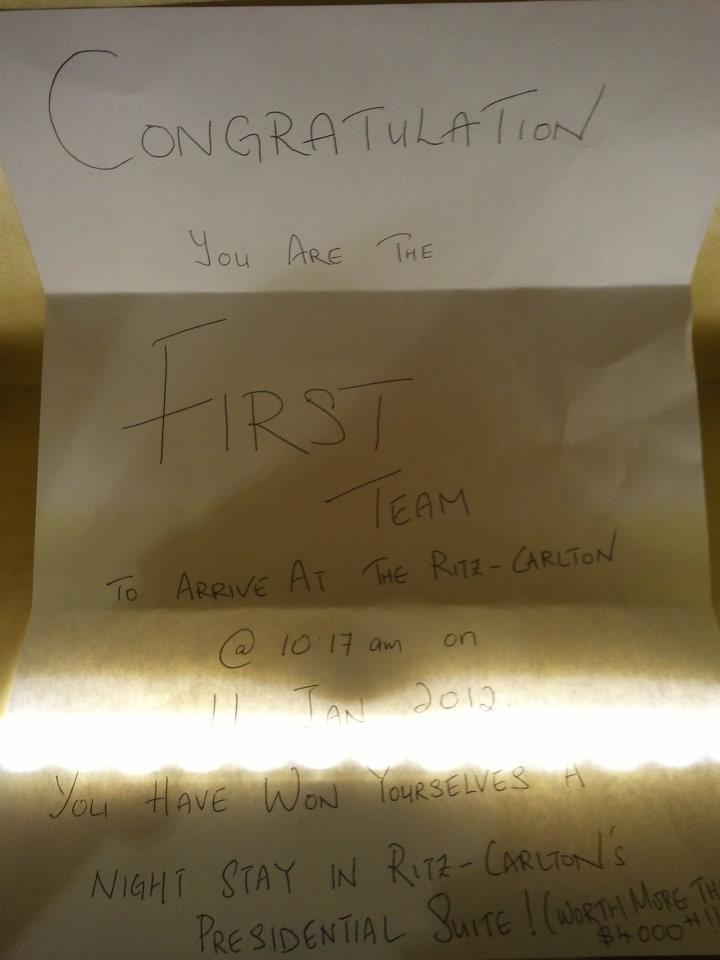 CONGRATULATION
YOU ARE THE
FIRST
TEAM
TO ARRIVE AT THE RITZ-CARLTON
@ 10:17 am on
11 JAN 2012.
YOU HAVE WON YOURSELVES A
NIGHT STAY IN RITZ-CARLTON'S
PRESIDENTIAL SUITE! (WORTH MORE
$4000